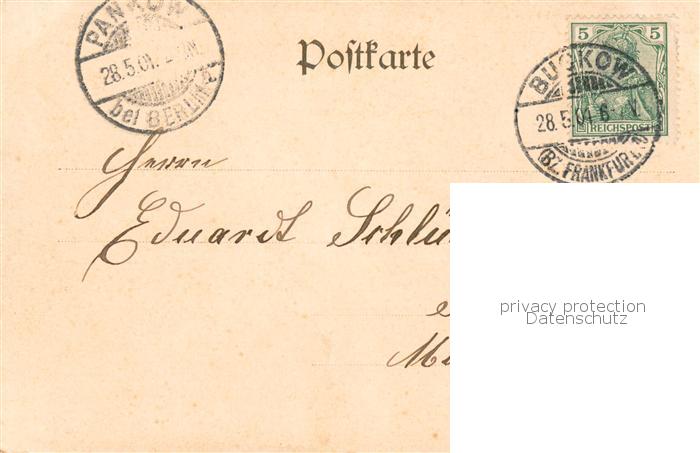 PANKOW
28.5.01.
bei BERLIN
Postkarte
5 5
REICHSPOST
BUCKOW
28.5.01
(BZ. FRANKFURT
Herrn
Eduard Schlü
privacy protection
Datenschutz